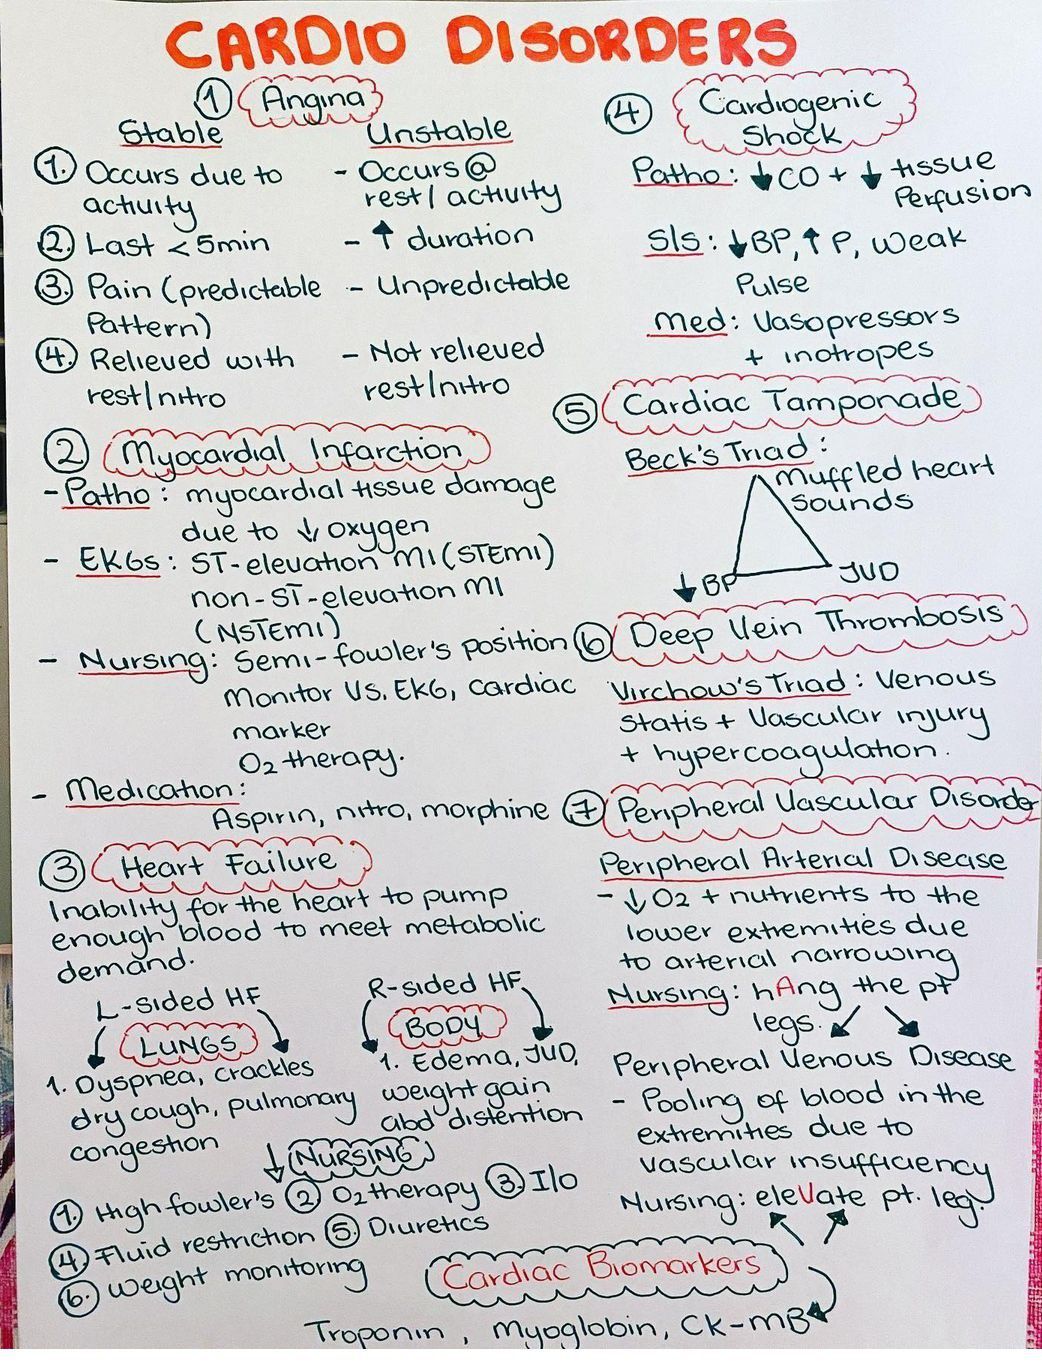 CARDIO DISORDERS
① Angina
Stable
Unstable
①. Occurs due to
activity
- Occurs @
rest/activity
②. Last <5min
- ↑ duration
③. Pain (predictable
Pattern)
- Unpredictable
④. Relieved with
rest/nitro
- Not relieved
rest/nitro
② Myocardial Infarction
- Patho: myocardial tissue damage
due to ↓ oxygen
- EKGs: ST-elevation MI (STEMI)
non-ST-elevation MI
(NSTEMI)
- Nursing: Semi-fowler's position
Monitor VS. EKG, Cardiac
marker
O2 therapy.
- Medication:
Aspirin, nitro, morphine
③ Heart Failure
Inability for the heart to pump
enough blood to meet metabolic
demand.
L-sided HF
LUNGS
1. Dyspnea, crackles
dry cough, pulmonary
congestion
R-sided HF
BODY
1. Edema, JVD,
weight gain
abd distention
↓ NURSING
①. High fowler's ② O2 therapy ③ I/O
④. Fluid restriction ⑤. Diuretics
⑥. Weight monitoring
④ Cardiogenic
Shock
Patho: ↓ CO + ↓ tissue
Perfusion
S/s: ↓BP, ↑ P, weak
Pulse
Med: Vasopressors
+ inotropes
⑤ Cardiac Tamponade
Beck's Triad:
Muffled heart
sounds
↓ BP
JVD
⑥ Deep Vein Thrombosis
Virchow's Triad: Venous
Statis + Vascular injury
+ hypercoagulation.
⑦ Peripheral Vascular Disorder
Peripheral Arterial Disease
- ↓ O2 + nutrients to the
lower extremities due
to arterial narrowing
Nursing: hAng the pt
legs.
Peripheral Venous Disease
- Pooling of blood in the
extremities due to
vascular insufficiency
Nursing: eleVate pt. leg.
Cardiac Biomarkers
Troponin, Myoglobin, CK-MB